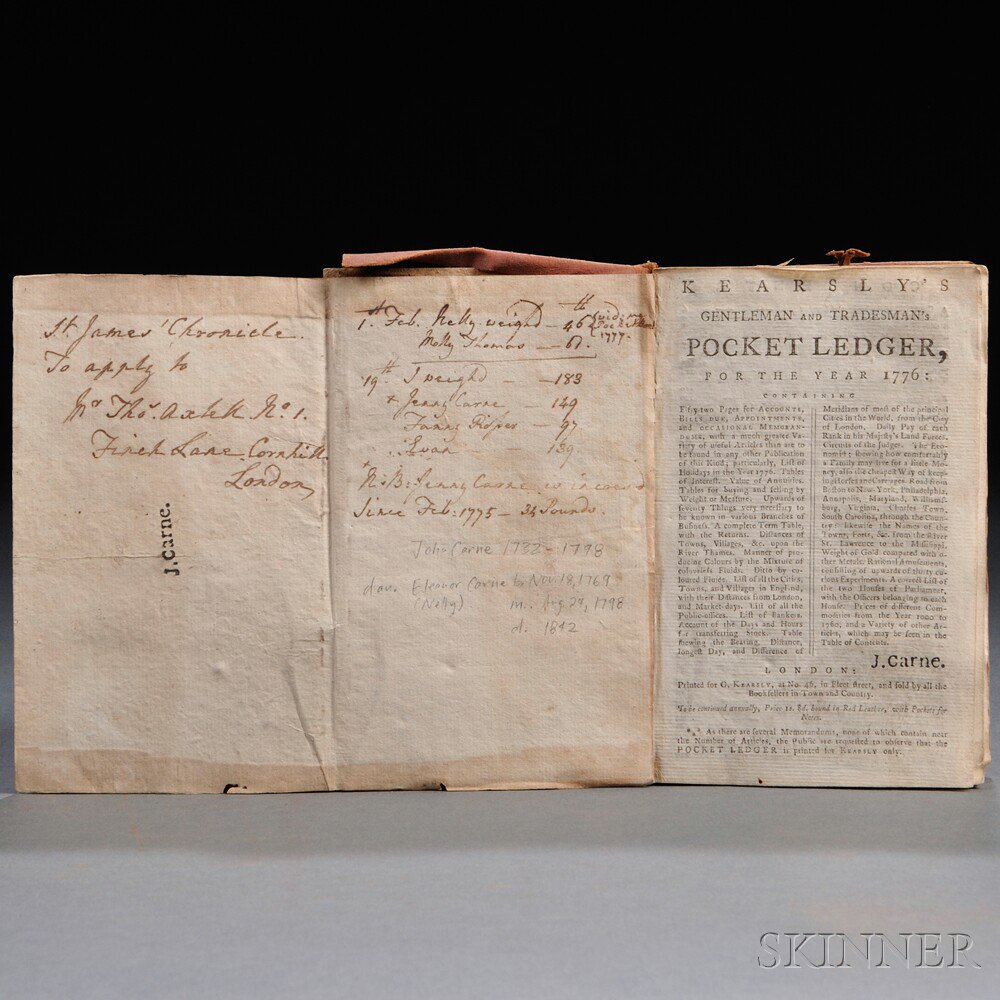 St. James' Chronicle.
To apply to
Mr Thos. Axtell No. 1.
Finch Lane Cornhill
London
J. Carne.
1st Feb. Nelly weighd - 46
1777.
Molly Thomas - 61.
19th I weighd - 183
+ Jenny Carne - 149
Fanny - 97
Evan - 139
N:B: Jenny Carne is increasd
Since Feb: 1775 - 34 Pounds.
John Carne 1732 - 1798
dau. Eleanor Carne b. Nov. 18, 1769
(Nelly) m. Aug 24, 1798
d. 1842
KEARSLY'S
GENTLEMAN AND TRADESMAN'S
POCKET LEDGER,
FOR THE YEAR 1776:
CONTAINING
Fifty-two Pages for ACCOUNTS,
BILLS DUE, APPOINTMENTS,
and OCCASIONAL MEMORAN-
DUMS, with a much greater Va-
riety of useful Articles than are to
be found in any other Publication
of this Kind; particularly, List of
Holidays in the Year 1776. Tables
of Interest. Value of Annuities.
Tables for buying and selling by
Weight or Measure. Upwards of
seventy Things very necessary to
be known in various Branches of
Business. A complete Term Table,
with the Returns. Distances of
Towns, Villages, &c. upon the
River Thames. Manner of pro-
ducing Colours by the Mixture of
colourless Fluids. Ditto by co-
loured Fluids. List of all the Cities,
Towns, and Villages in England,
with their Distances from London,
and Market-days. List of all the
Public-offices. List of Bankers.
Account of the Days and Hours
for transferring Stock. Table
shewing the Bearing, Distance,
longest Day, and Difference of
Meridians of most of the principal
Cities in the World, from the City
of London. Daily Pay of each
Rank in his Majesty's Land Forces.
Circuits of the Judges. The Eco-
nomist; shewing how comfortably
a Family may live for a little Mo-
ney, also the cheapest Way of keep-
ing Horses and Carriages. Road from
Boston to New-York, Philadelphia,
Annapolis, Maryland, Williams-
burg, Virginia, Charles Town,
South Carolina, through the Coun-
try: likewise the Names of the
Towns, Forts, &c. from the River
St. Lawrence to the Missisippi.
Weight of Gold compared with o-
ther Metals. Rational Amusements,
consisting of upwards of thirty cu-
rious Experiments. A correct List of
the two Houses of Parliament,
with the Officers belonging to each
House. Prices of different Com-
modities from the Year 1000 to
1760; and a Variety of other Ar-
ticles, which may be seen in the
Table of Contents.
J. Carne.
LONDON:
Printed for G. KEARSLY, at No. 46, in Fleet street, and sold by all the
Booksellers in Town and Country.
To be continued annually, Price 1s. 8d. bound in Red Leather, with Pockets for
Notes.
*** As there are several Memorandums, none of which contain near
the Number of Articles, the Public are requested to observe that the
POCKET LEDGER is printed for KEARSLY only.
SKINNER